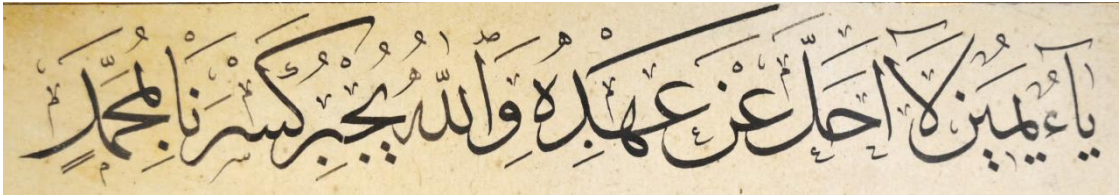 يَا ءُيمَيِنُ لَا اَحَلَّ عَنْ عَهْدِهُ وَاللّٰهُ يُجْبِرُ كَسْرَنَا بِمُحَمَّدٍ